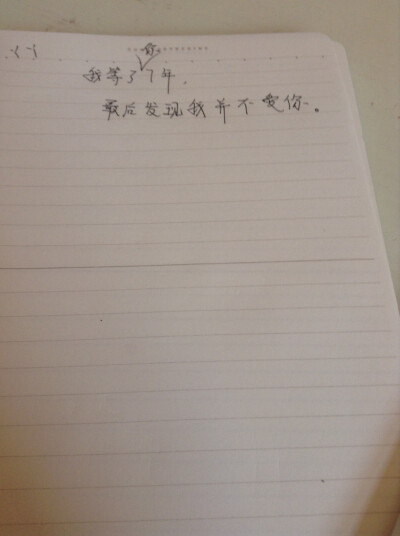 我等了你7年.
最后发现我并不爱你。